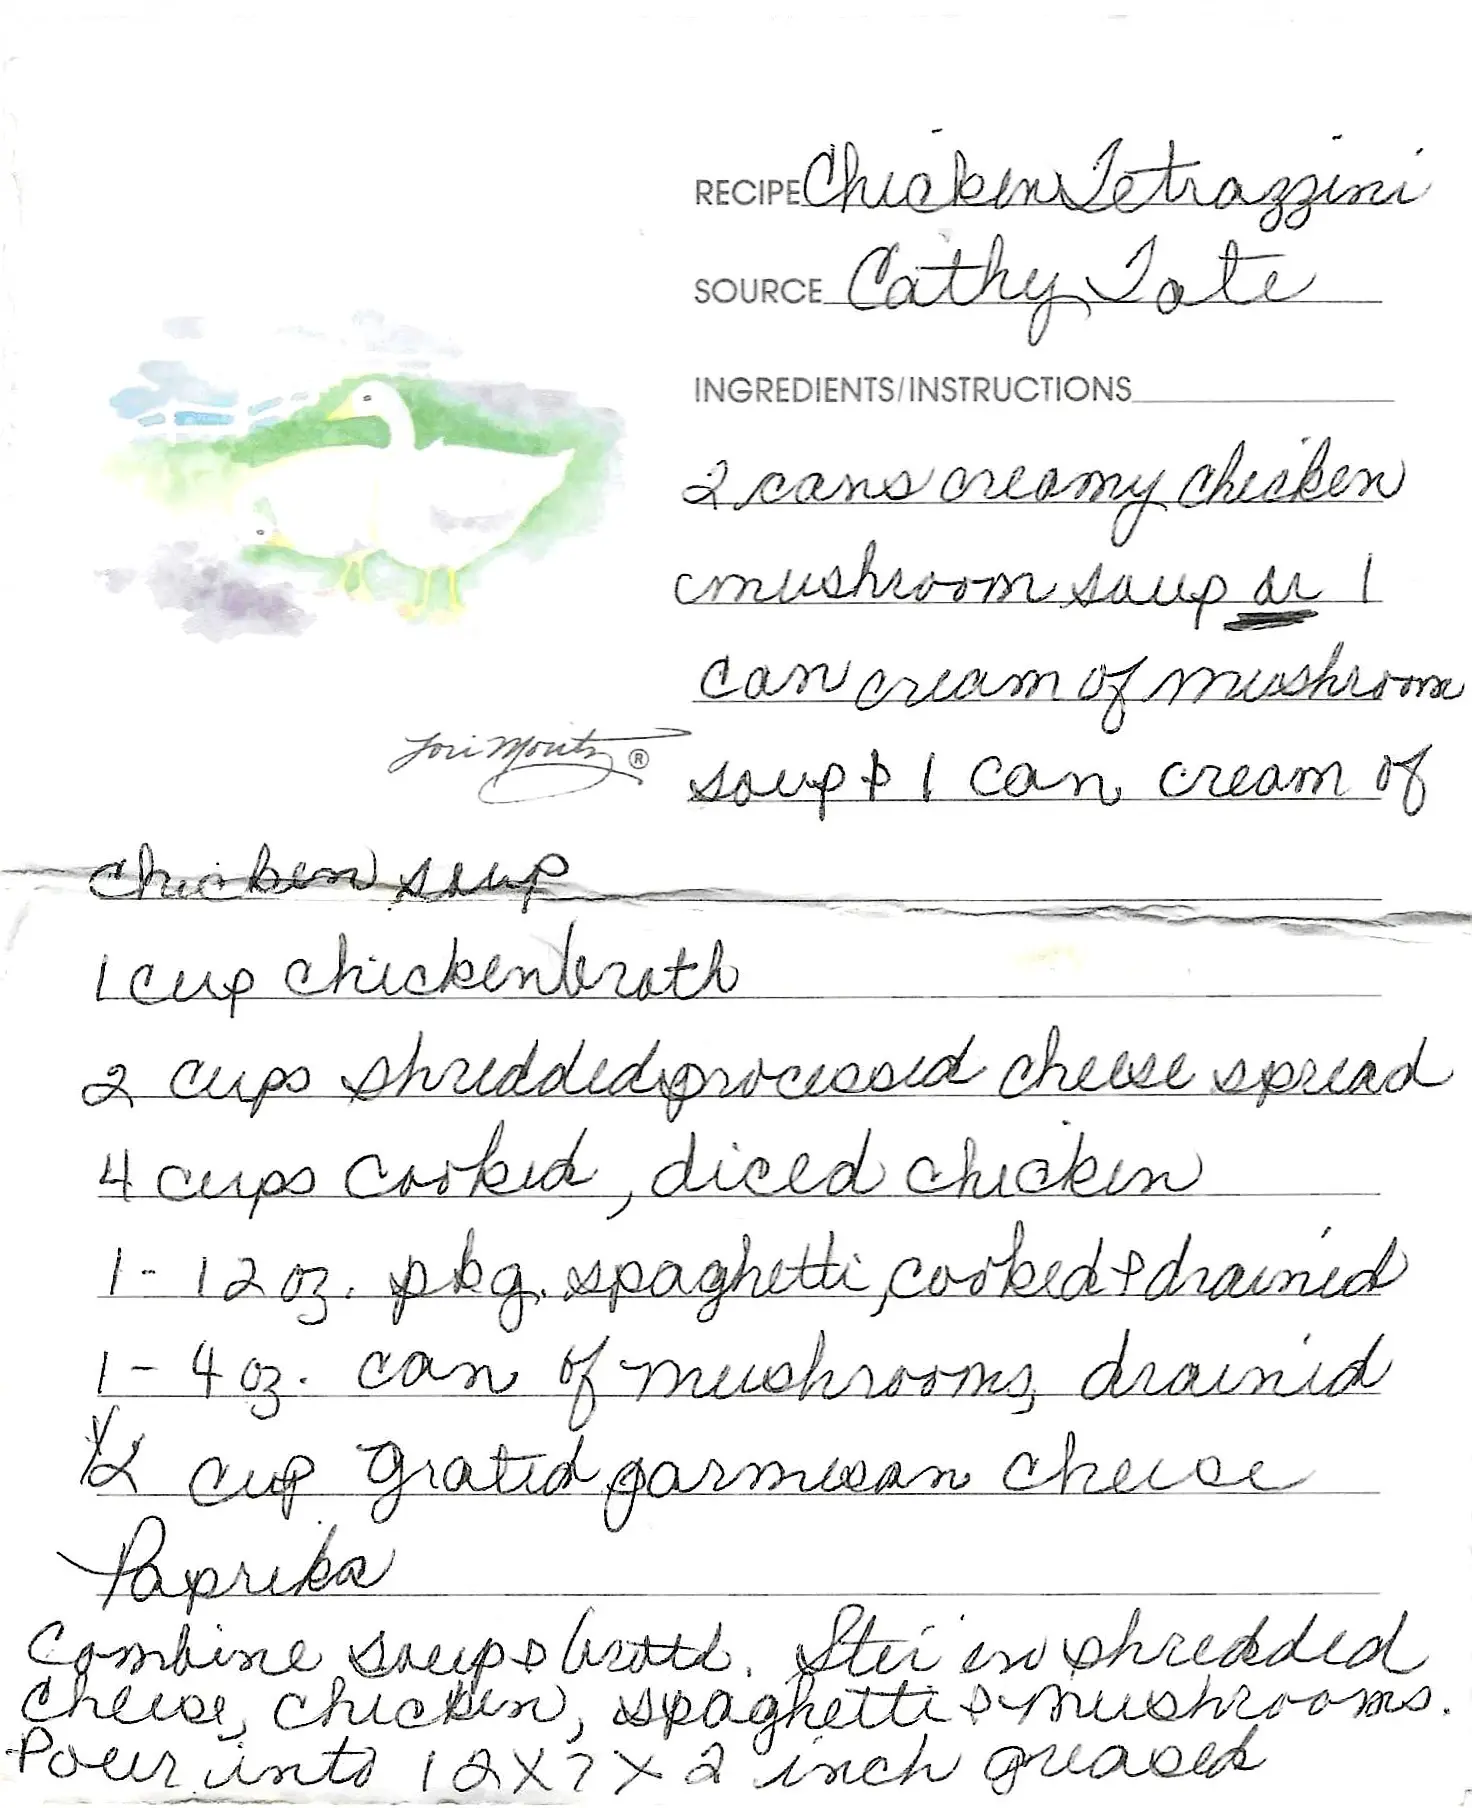 RECIPE Chicken Tetrazzini
SOURCE Cathy Tate
INGREDIENTS/INSTRUCTIONS
2 cans creamy chicken
mushroom soup or 1
can cream of mushroom
soup & 1 can cream of
Lori Moritz ®
chicken soup
1 cup chicken broth
2 cups shredded processed cheese spread
4 cups cooked, diced chicken
1 - 12 oz. pkg. spaghetti, cooked & drained
1 - 4 oz. can of mushrooms, drained
1/2 cup grated parmesan cheese
Paprika
Combine soup & broth. Stir in shredded
cheese, chicken, spaghetti & mushrooms.
Pour into 12 X 7 X 2 inch greased